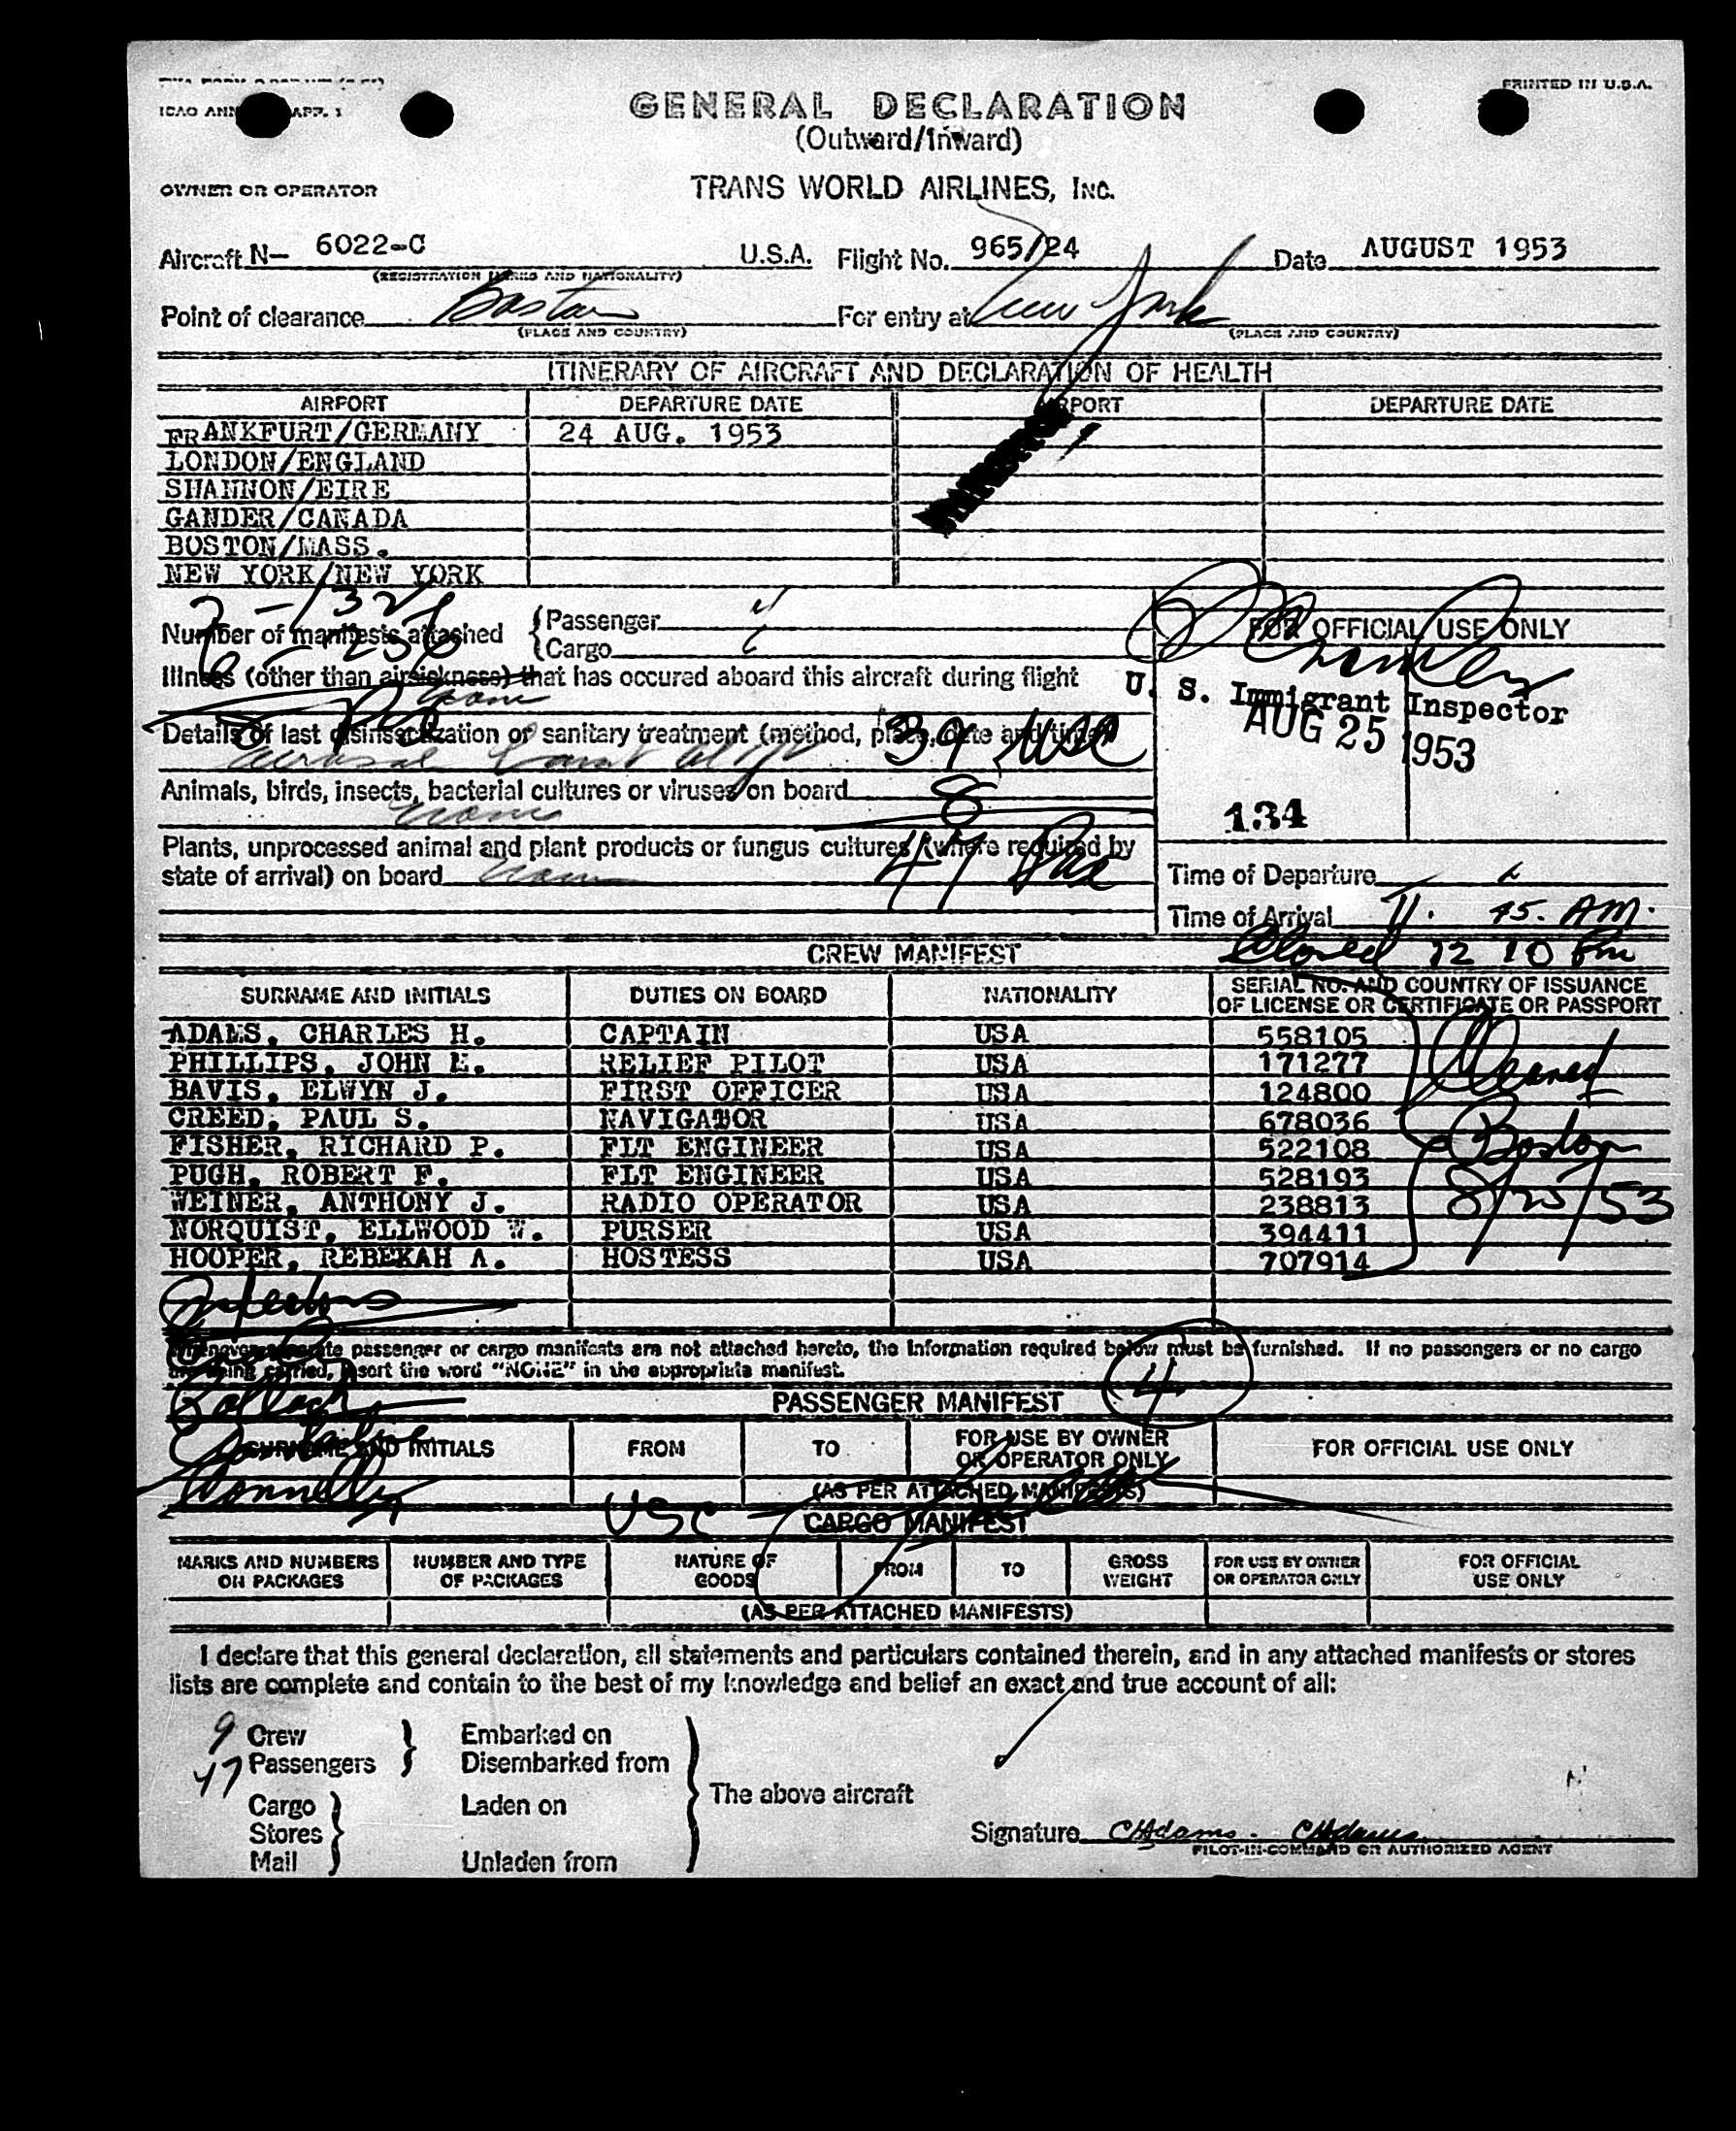 PRINTED IN U.S.A.
ICAO ANN APP. 1
GENERAL DECLARATION
(Outward/Inward)
OWNER OR OPERATOR
TRANS WORLD AIRLINES, INC.
Aircraft N- 6022-C U.S.A. Flight No. 965/24 Date AUGUST 1953
(REGISTRATION MARKS AND NATIONALITY)
Point of clearance Boston For entry at New York
(PLACE AND COUNTRY) (PLACE AND COUNTRY)
ITINERARY OF AIRCRAFT AND DECLARATION OF HEALTH
AIRPORT DEPARTURE DATE AIRPORT DEPARTURE DATE
FRANKFURT/GERMANY 24 AUG. 1953
LONDON/ENGLAND
SHANNON/EIRE
GANDER/CANADA
BOSTON/MASS.
NEW YORK/NEW YORK
Number of manifests attached { Passenger
Cargo
FOR OFFICIAL USE ONLY
Illness (other than airsickness) that has occured aboard this aircraft during flight
None
U. S. Immigrant Inspector
AUG 25 1953
134
Details of last disinsectization or sanitary treatment (method, place, date and time)
39 USC
Animals, birds, insects, bacterial cultures or viruses on board 8
None
Plants, unprocessed animal and plant products or fungus cultures (where required by
state of arrival) on board None 47 Pax
Time of Departure
Time of Arrival 11. 45. AM.
Closed 12 10 Pm
CREW MANIFEST
SURNAME AND INITIALS DUTIES ON BOARD NATIONALITY SERIAL NO. AND COUNTRY OF ISSUANCE
OF LICENSE OR CERTIFICATE OR PASSPORT
ADAMS, CHARLES H. CAPTAIN USA 558105
PHILLIPS, JOHN E. RELIEF PILOT USA 171277
BAVIS, ELWYN J. FIRST OFFICER USA 124800
CREED, PAUL S. NAVIGATOR USA 678036
FISHER, RICHARD P. FLT ENGINEER USA 522108
PUGH, ROBERT F. FLT ENGINEER USA 528193
WEINER, ANTHONY J. RADIO OPERATOR USA 238813
NORQUIST, ELLWOOD W. PURSER USA 394411
HOOPER, REBEKAH A. HOSTESS USA 707914
Cleared
Boston
8/25/53
Inspectors
Whenever separate passenger or cargo manifests are not attached hereto, the information required below must be furnished. If no passengers or no cargo
are being carried, insert the word "NONE" in the appropriate manifest.
4
PASSENGER MANIFEST
SURNAME AND INITIALS FROM TO FOR USE BY OWNER
OR OPERATOR ONLY FOR OFFICIAL USE ONLY
Donnelly
(AS PER ATTACHED MANIFESTS)
USC
CARGO MANIFEST
MARKS AND NUMBERS
ON PACKAGES NUMBER AND TYPE
OF PACKAGES NATURE OF
GOODS FROM TO GROSS
WEIGHT FOR USE BY OWNER
OR OPERATOR ONLY FOR OFFICIAL
USE ONLY
(AS PER ATTACHED MANIFESTS)
I declare that this general declaration, all statements and particulars contained therein, and in any attached manifests or stores
lists are complete and contain to the best of my knowledge and belief an exact and true account of all:
9 Crew } Embarked on
47 Passengers Disembarked from
The above aircraft
Cargo } Laden on
Stores
Mail Unladen from
Signature CHAdams. CHAdams
PILOT-IN-COMMAND OR AUTHORIZED AGENT